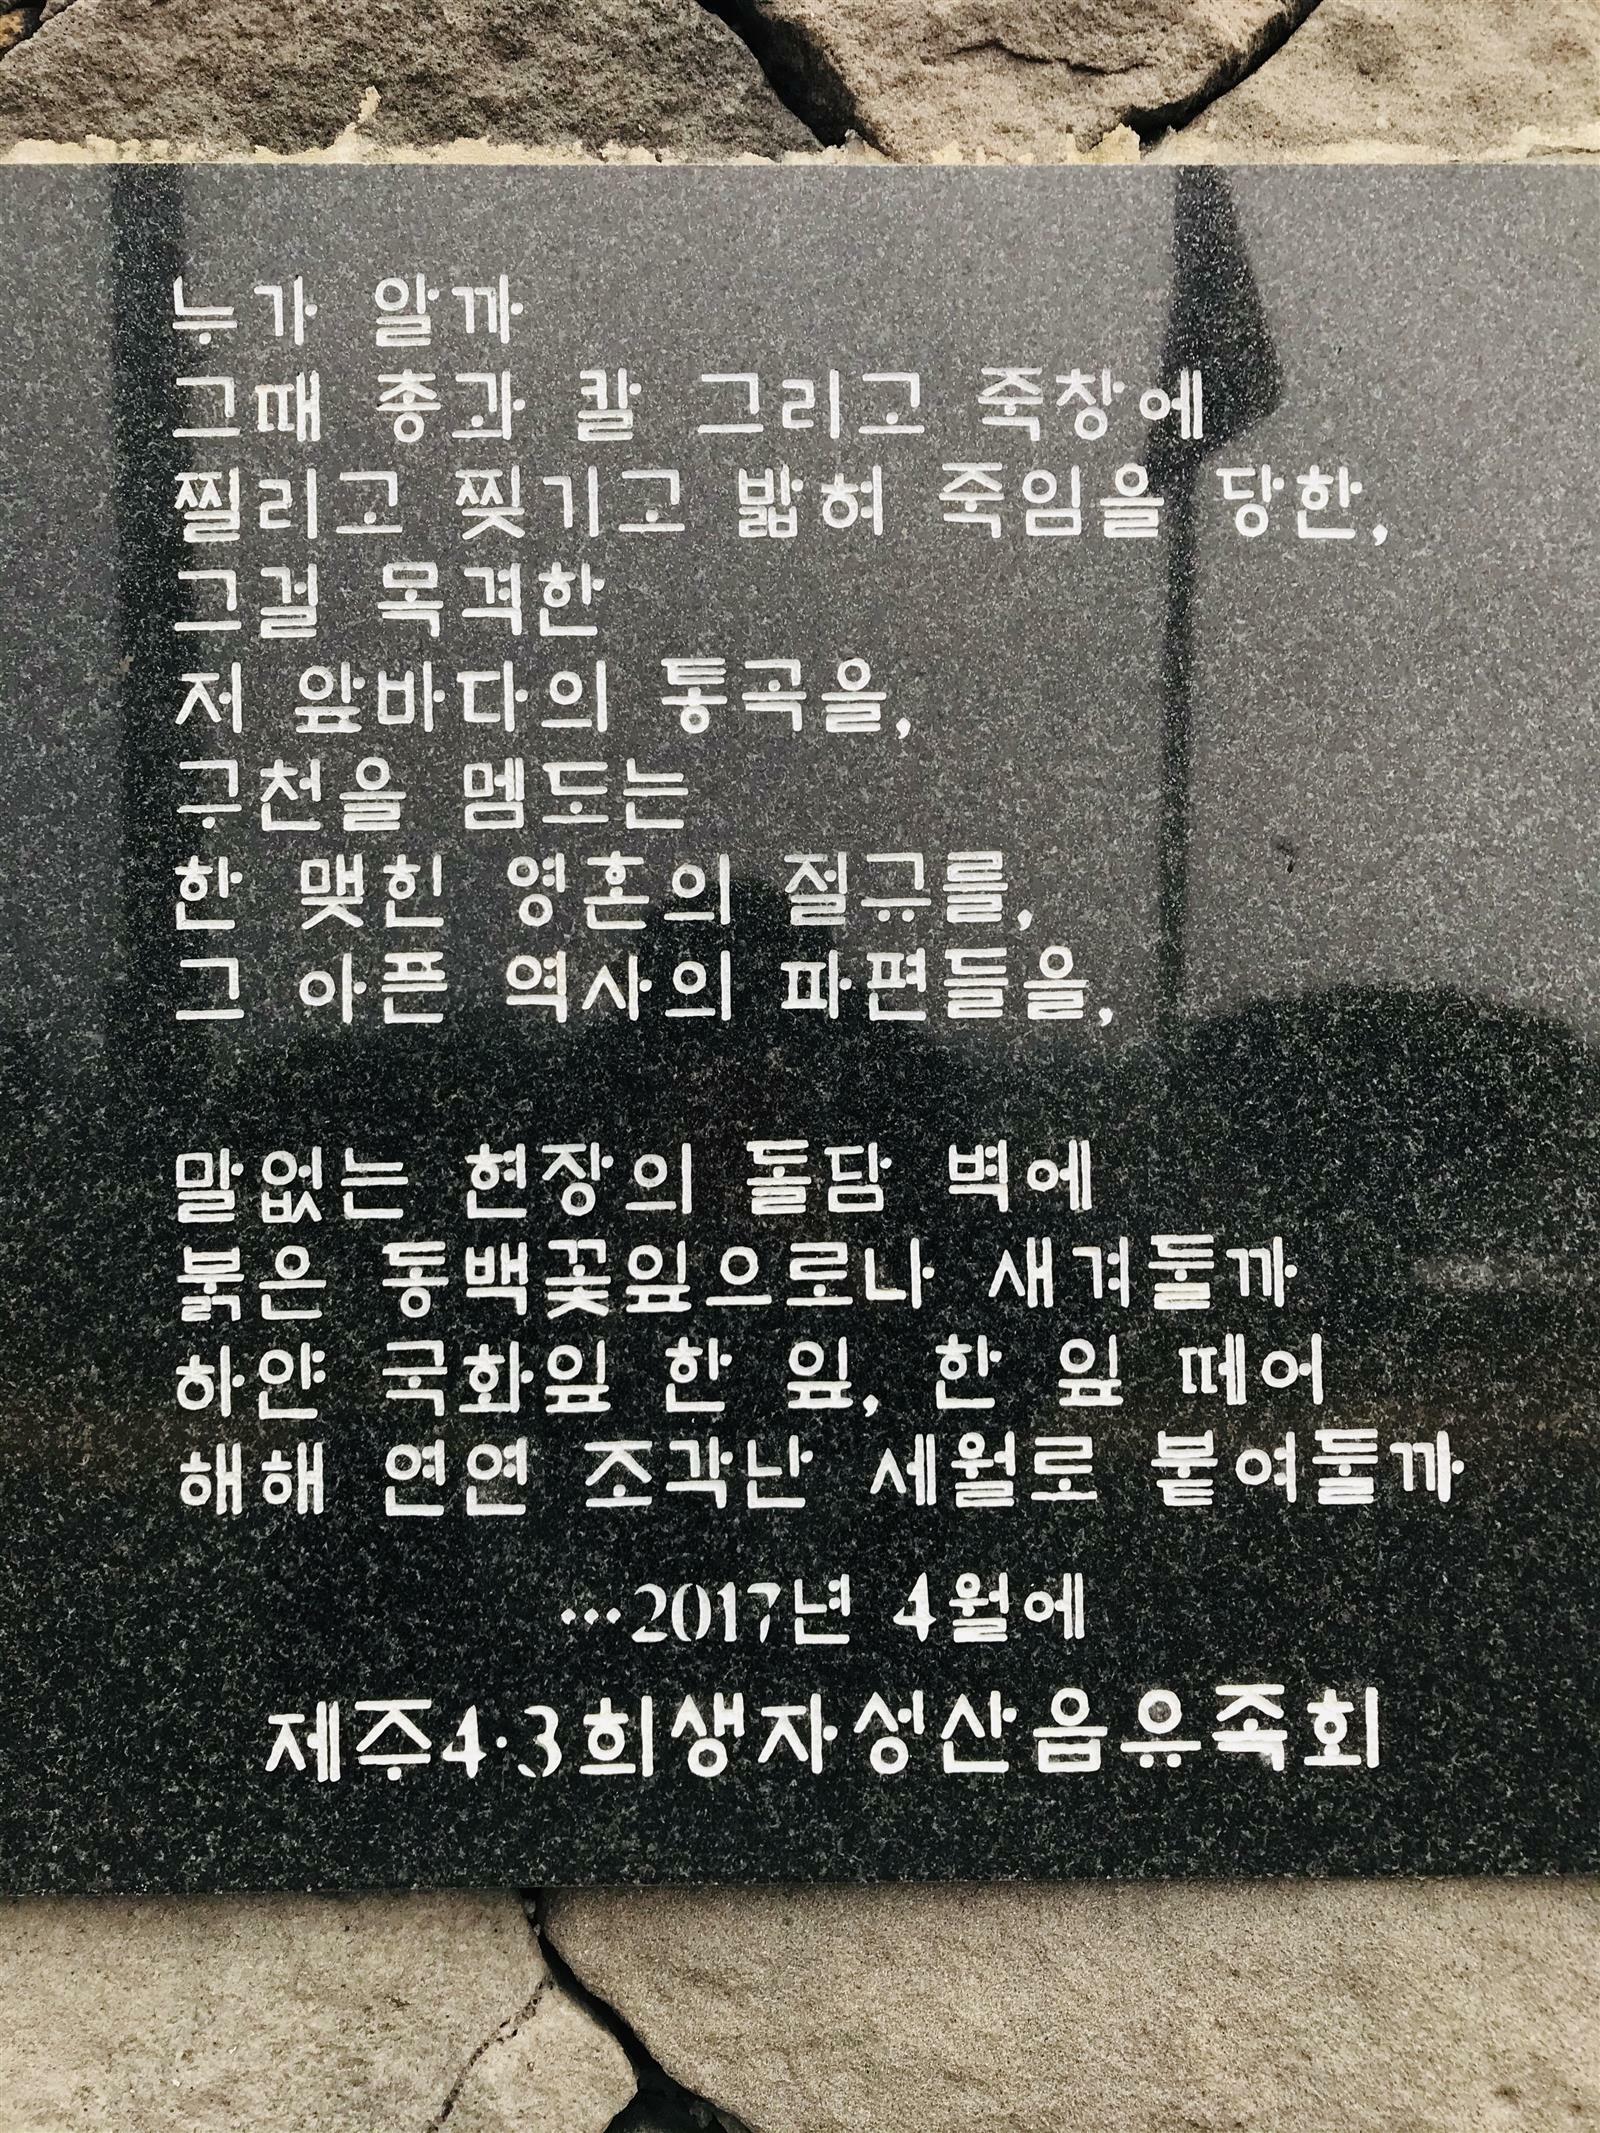 누가 알까
그때 총과 칼 그리고 죽창에
찔리고 찢기고 밟혀 죽임을 당한,
그걸 목격한
저 앞바다의 통곡을,
구천을 멤도는
한 맺힌 영혼의 절규를,
그 아픈 역사의 파편들을,
말없는 현장의 돌담 벽에
붉은 동백꽃잎으로나 새겨둘까
하얀 국화잎 한 잎, 한 잎 떼어
해해 연연 조각난 세월로 붙여둘까
…2017년 4월에
제주4·3희생자성산읍유족회